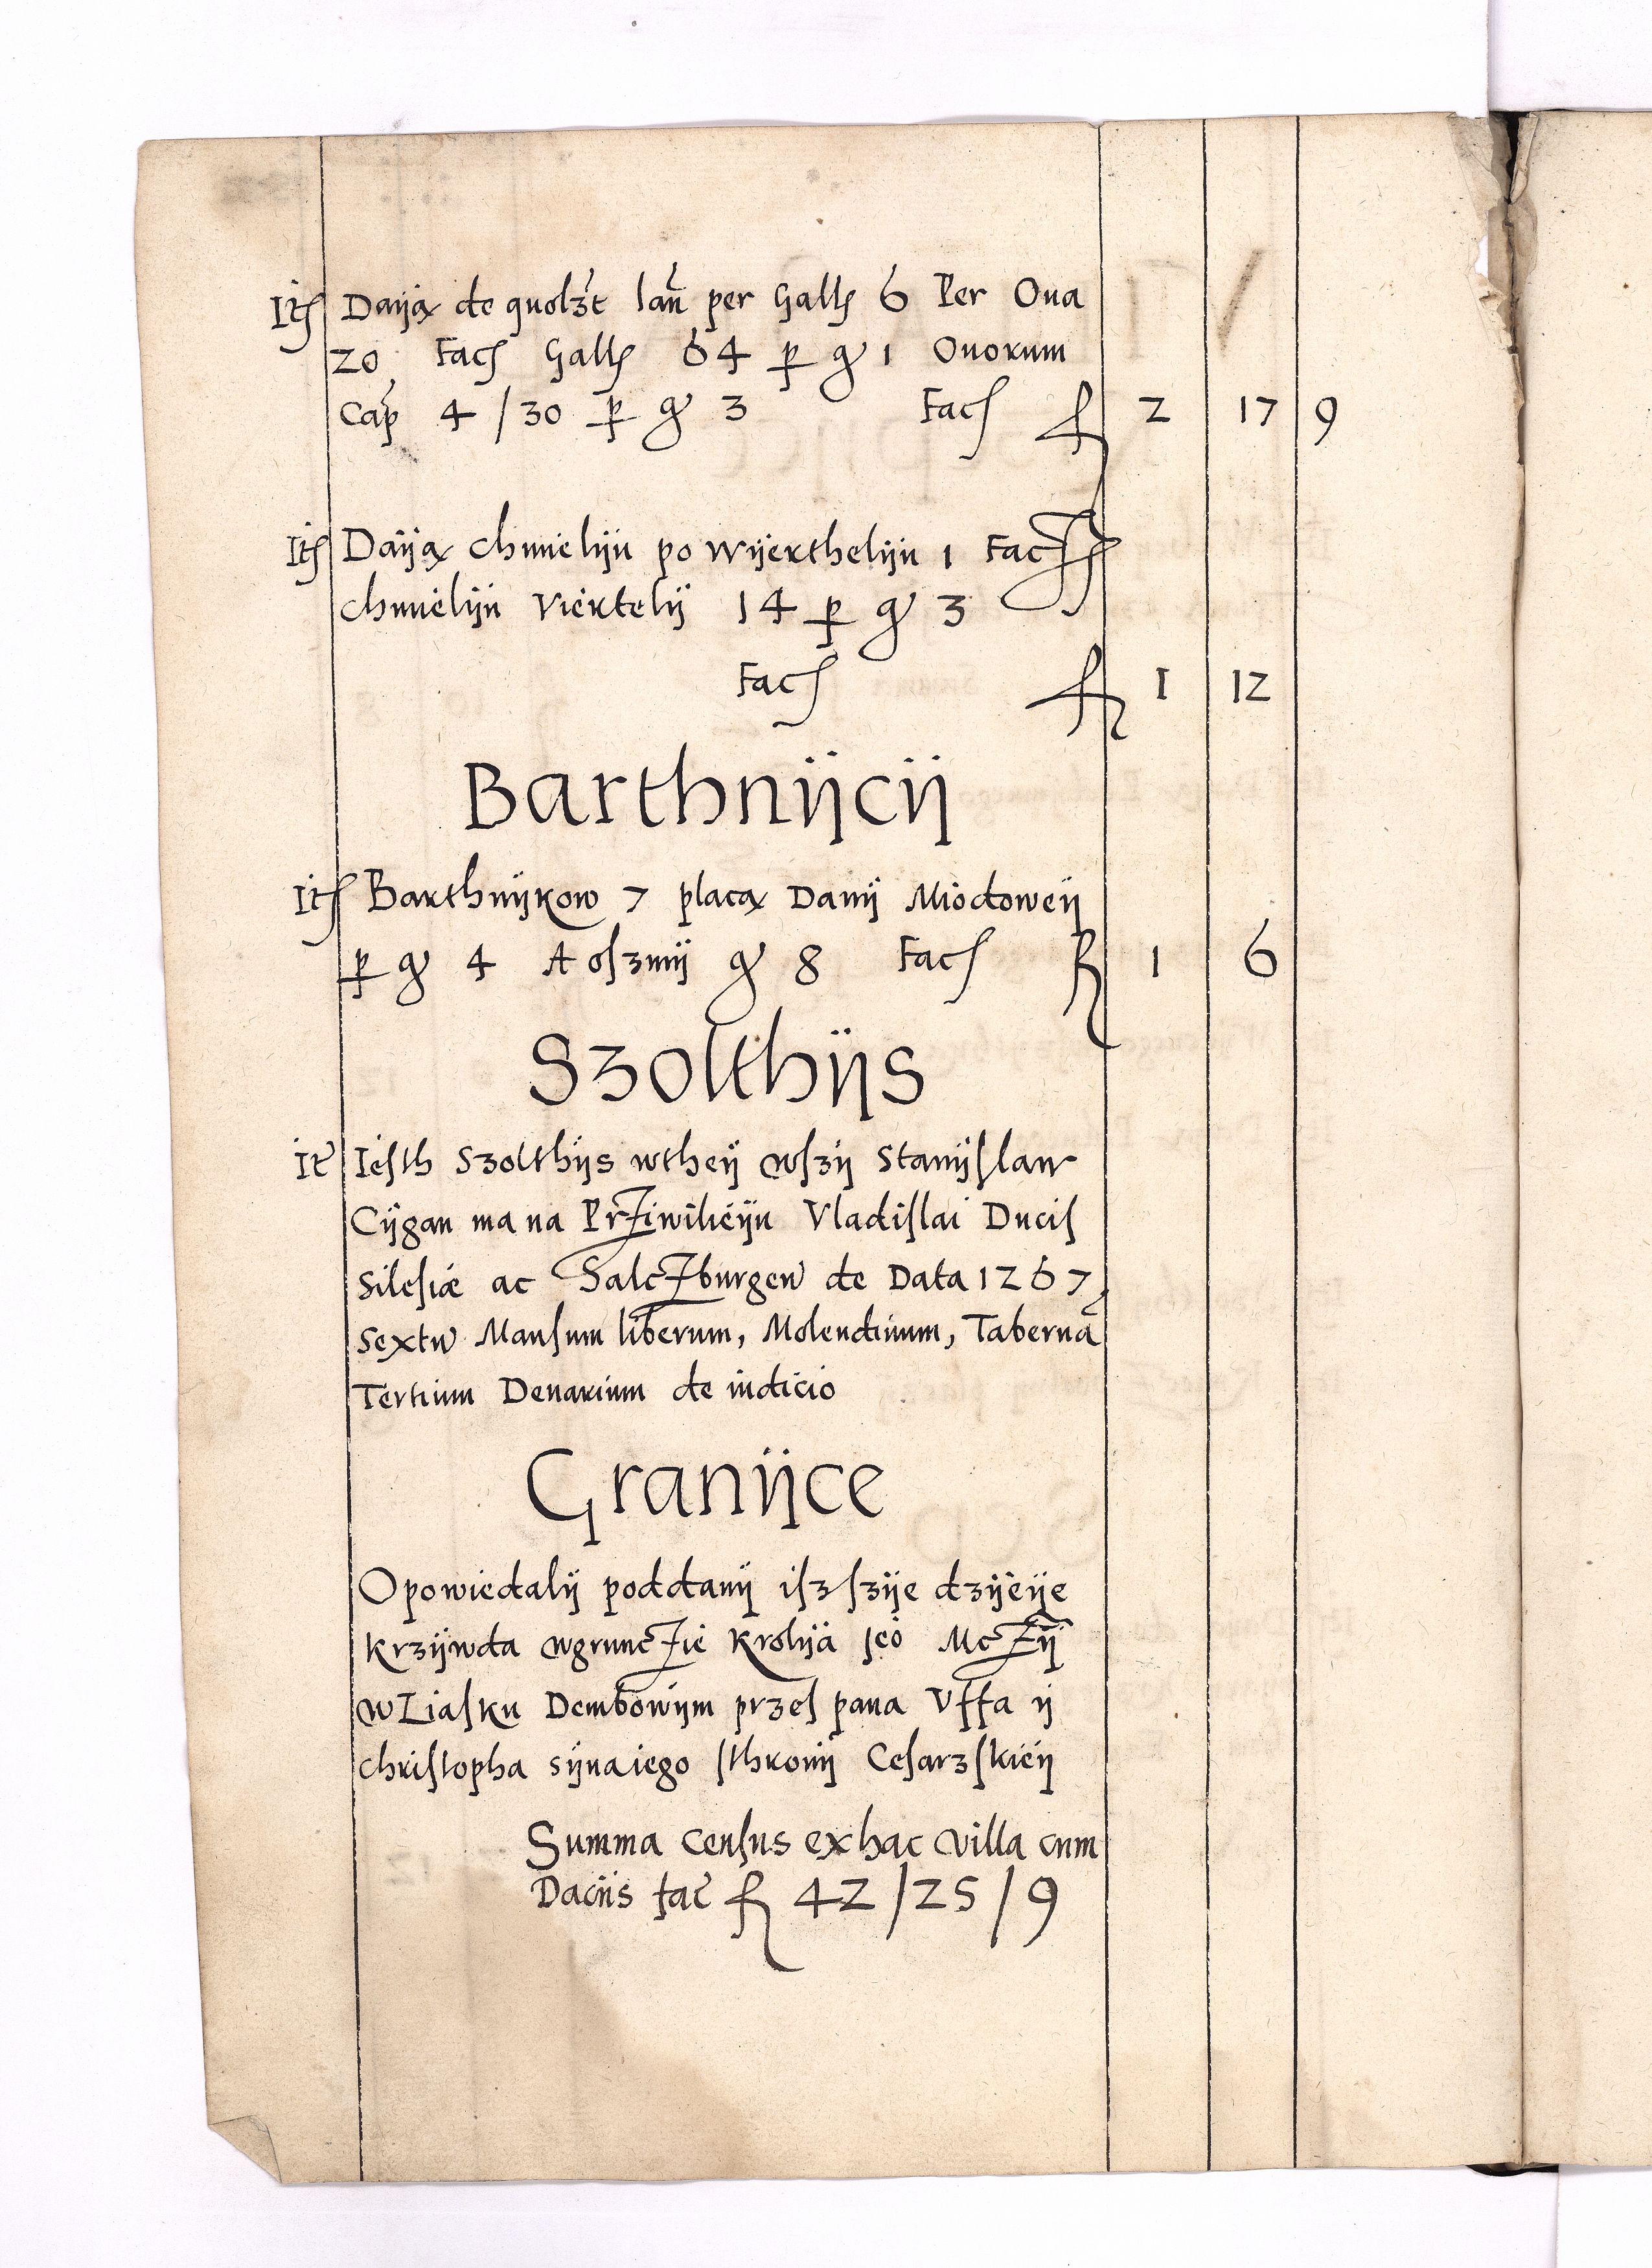 Itę Daiją de quolzt lan per Gallę 6 Per Oua
20 Facſ Gallę 64 p gr 1 Ouorum
Cap 4 / 30 p gr 3 Facſ fl 2 17 9
Itę Daiją chmielijn po wijerthelijn 1 Facſ
chmielijn viertelij 14 p gr 3
Facſ fl 1 12
Barthnijcij
Itę Barthnijkow 7 płaca Danij Miodoweij
p gr 4 A oſzmij gr 8 Facſ fl 1 6
Szolthijs
It Ieſth Szolthijs wtheij wſzij Stanijſlaw
Cijgan ma na Prziwilieijn Vladiſlai Ducis
Sileſiæ ac Salczburgen de Data 1267
Sextu Manſum liberum, Molendinum, Taberna
Tertium Denarium de iudicio
Granijce
Opowiedalij poddanij iſz ſzije dzijeije
krzijwda wgrunczie Krolija ieo Mczij
w Liaſku Dembowijm przeſ pana Vffa ij
Chriſtopha sijna iego ſthronij Ceſarzſkieij
Summa cenſus ex hac villa cum
Daciis fac fl 42 / 25 / 9